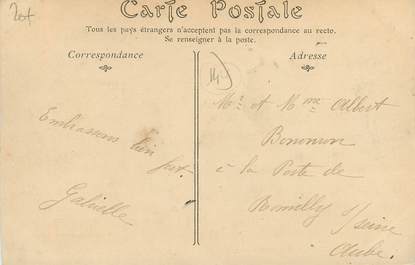 Carte Postale
Tous les pays étrangers n'acceptent pas la correspondance au recto.
Se renseigner à la poste.
Correspondance
Adresse
Mr et Mme Albert
à la Poste de
Romilly s/seine
Aube
Embrassons bien
fort.
Gabrielle